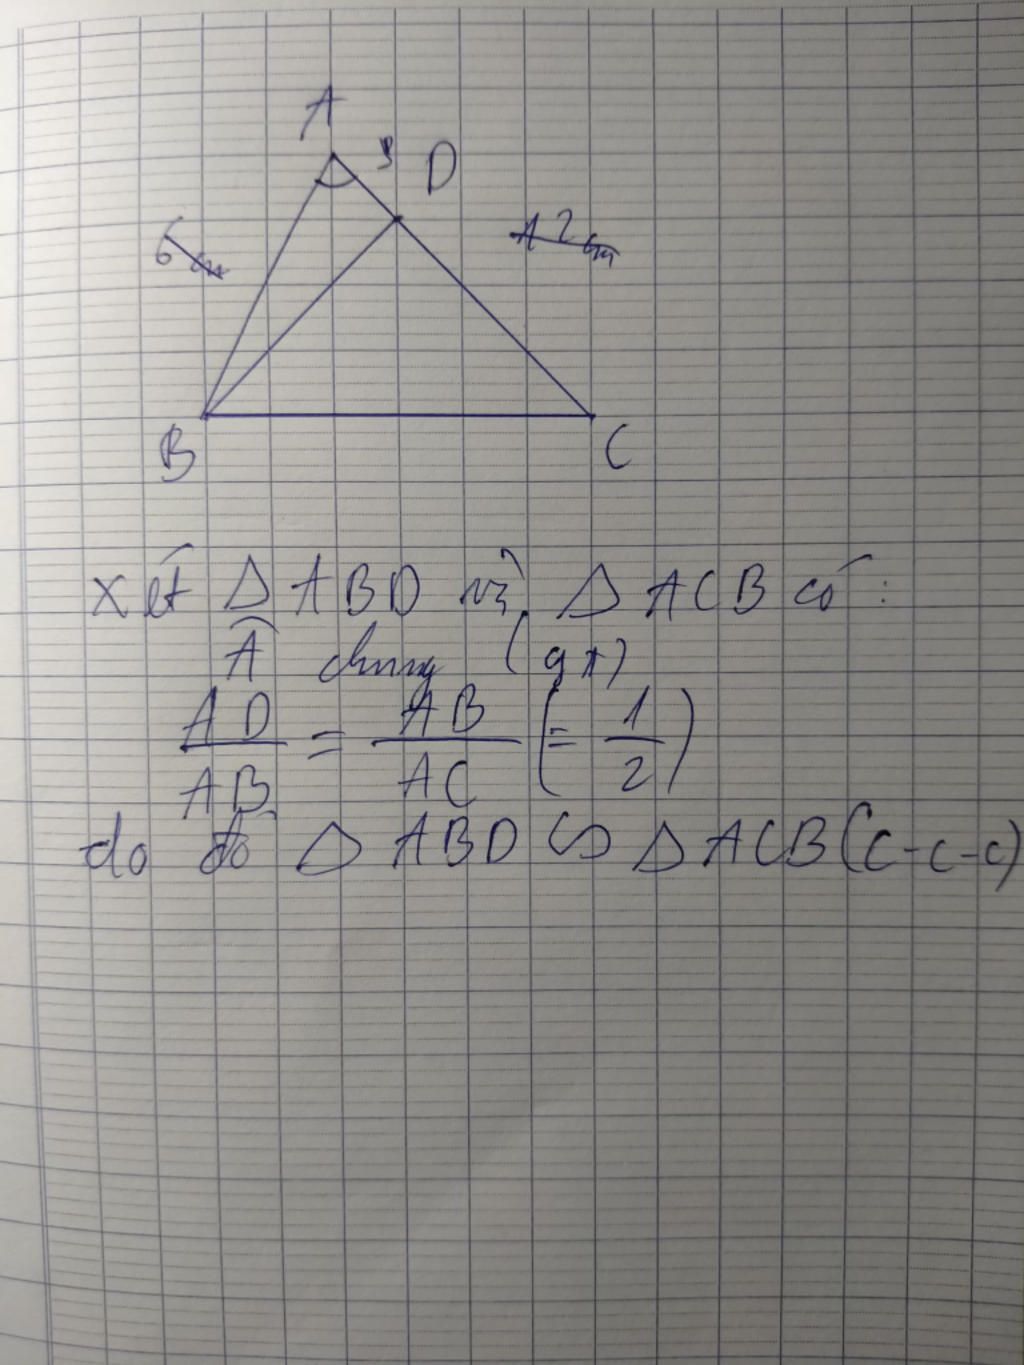 A
3 D
6 cm
12 cm
B
C
xét Δ ABD và Δ ACB có :
Â chung (gt)
AD/AB = AB/AC (= 1/2)
do đó Δ ABD ∽ Δ ACB (c-c-c)